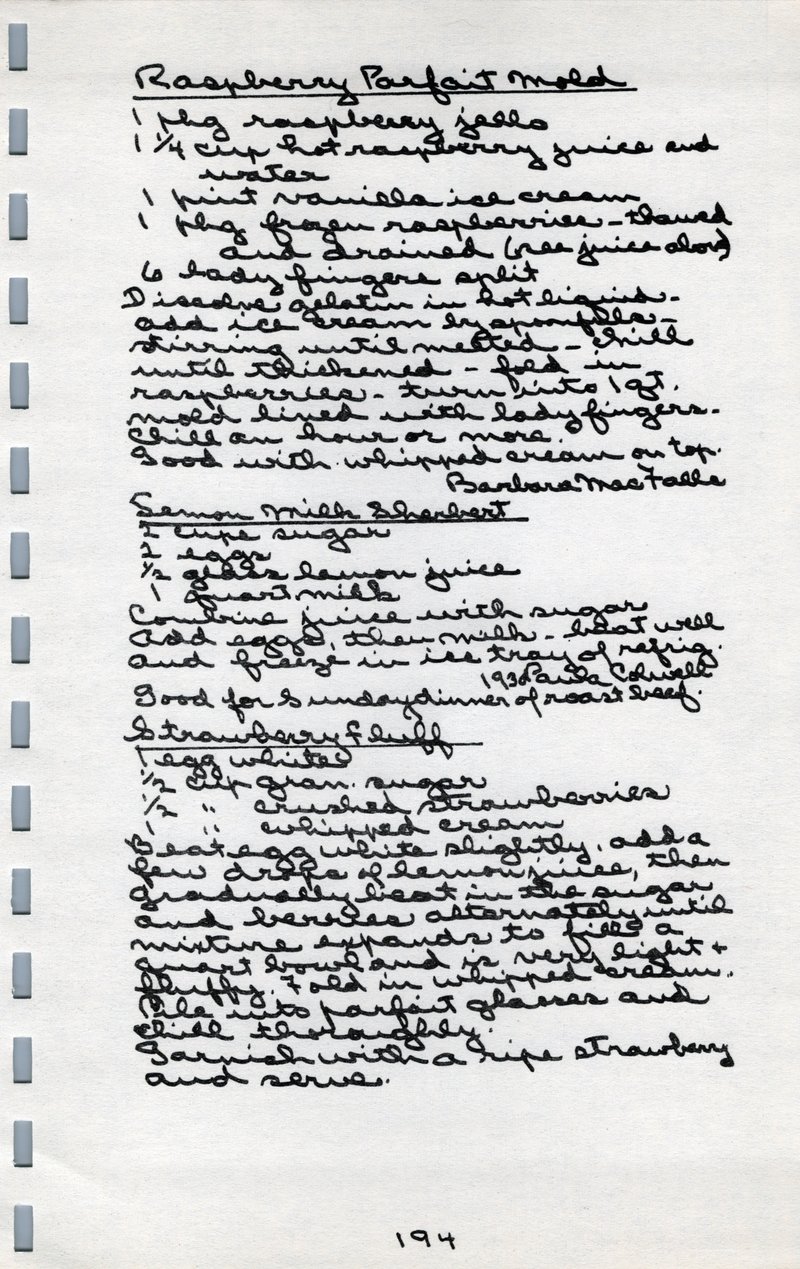 Raspberry Parfait Mold
1 pkg raspberry jello
1 1/4 cup hot raspberry juice and
water
1 pint vanilla ice cream
1 pkg frozen raspberries - thawed
and drained (see juice above)
6 lady fingers split
Dissolve gelatin in hot liquid -
add ice cream by spoonfulls -
stirring until melted - chill
until thickened - fold in
raspberries - turn into 1 qt.
mold lined with lady fingers -
Chill an hour or more.
Good with whipped cream on top.
Barbara MacFalls
Lemon Milk Sherbert
2 cups sugar
2 eggs
1/2 glass lemon juice
1 quart milk
Combine juice with sugar
add eggs, then milk - beat well
and freeze in ice tray of refrig.
1930 Paula Colwell
Good for Sunday dinner of roast beef.
Strawberry Fluff
1 egg white
1/2 cup gran. sugar
1/2 " crushed strawberries
1 " whipped cream
Beat egg white slightly, add a
few drops of lemon juice, then
gradually beat in the sugar
and berries alternately until
mixture expands to fill a
quart bowl and is very light +
fluffy. Fold in whipped cream.
Pile into parfait glasses and
chill thoroughly.
Garnish with a ripe strawberry
and serve.
194